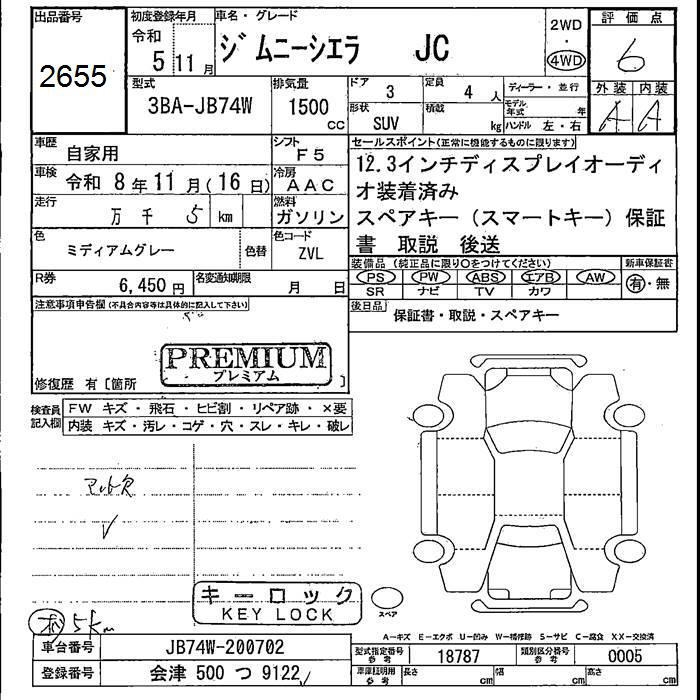 出品番号
2655
初度登録年月
令和
5 11月
車名・グレード
ジムニーシエラ JC
2WD
・
4WD
評価点
6
外装 内装
A A
型式
3BA-JB74W
排気量
1500
CC
ドア
3
定員
4 人
形状
SUV
積載
kg
ディーラー・並行
モデル年式 年
ハンドル 左・右
車歴
自家用
シフト
F5
車検
令和 8年11月(16日)
冷房
AAC
走行
万 千 5 km
燃料
ガソリン
色
ミディアムグレー
色替
色コード
ZVL
R券
6,450円
名変通知期限
月 日
セールスポイント(正常に機能するものに限ります)
12.3インチディスプレイオーディ
オ装着済み
スペアキー(スマートキー)保証
書 取説 後送
装備品(純正品に限り○をつけてください)
新車保証書
PS PW ABS エアB AW
SR ナビ TV カワ
有・無
後日品
保証書・取説・スペアキー
注意事項申告欄(不具合内容等は具体的に記入して下さい)
PREMIUM
プレミアム
修復歴 有〔箇所 〕
検査員
記入欄
FW キズ・飛石・ヒビ割・リペア跡・×要
内装 キズ・汚レ・コゲ・穴・スレ・キレ・破レ
マット欠
キーロック
KEY LOCK
スペア
5km
A-キズ E-エクボ U-凹み W-補修跡 S-サビ C-腐食 XX-交換済
車台番号
JB74W-200702
型式指定番号
参考
18787
類別区分番号
参考
0005
登録番号
会津 500 つ 9122
車庫証明用
参考
長さ cm
幅 cm
高さ cm